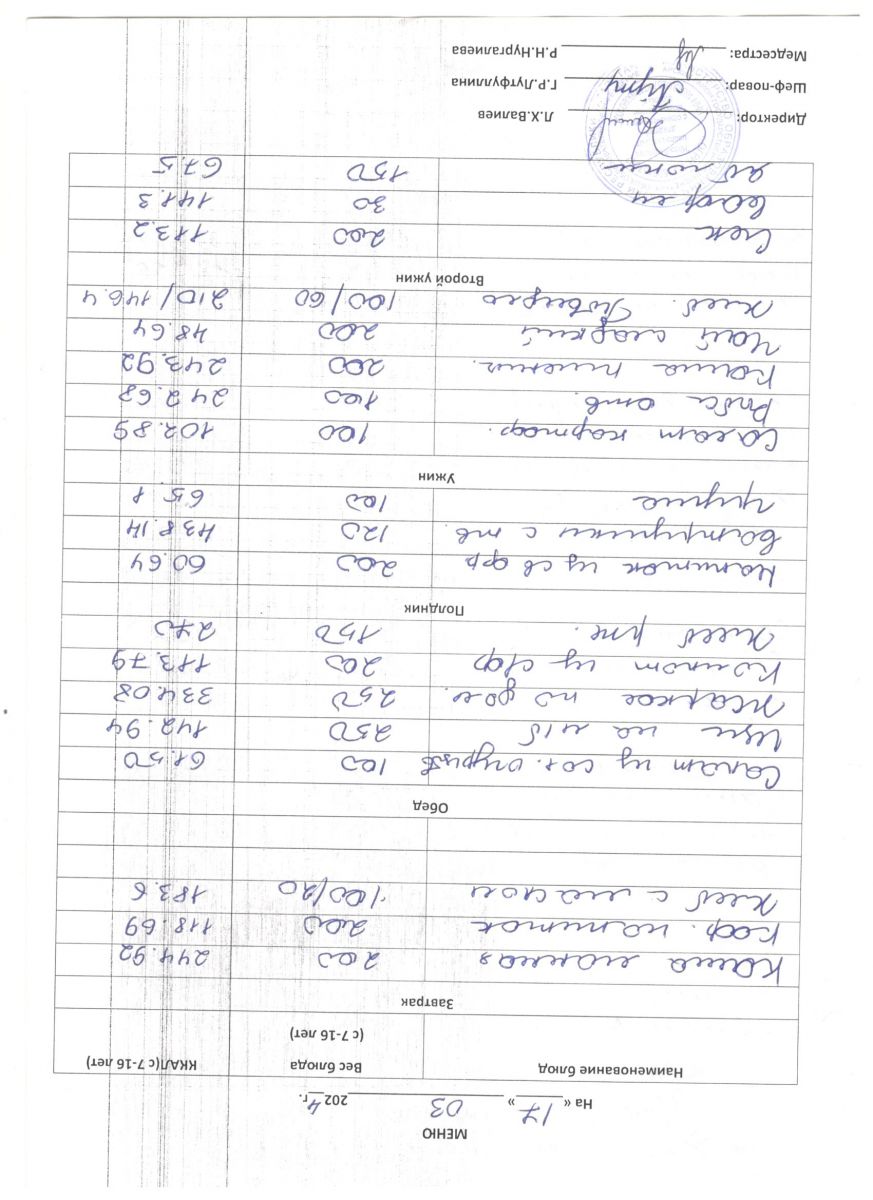 МЕНЮ
На « 17 » 03 2024г.
Наименование блюд Вес блюда (с 7-16 лет) ККАЛ(с 7-16 лет)
Завтрак
Каша манная 200 244.92
Коф. напиток 200 118.69
Хлеб с маслом 100/20 183.6
Обед
Салат из сол. огурцов 100 61.50
Щи на м/б 250 142.94
Жаркое по дом. 250 334.08
Компот из с/фр 200 113.79
Хлеб рж. 150 270
Полдник
Напиток из св фр 200 60.64
Ватрушки с тв. 120 438.14
груша 100 65.8
Ужин
Салат картоф. 100 102.89
Рыба отв. 100 242.68
Каша пшенич. 200 243.92
Чай сладкий 200 48.64
Хлеб. 100/60 210/146.4
Второй ужин
Сок 200 113.2
Вафли 30 141.3
яблоки 150 67.5
Директор: Л.Х.Валиев
Шеф-повар: Г.Р.Лутфуллина
Медсестра: Р.Н.Нургалиева